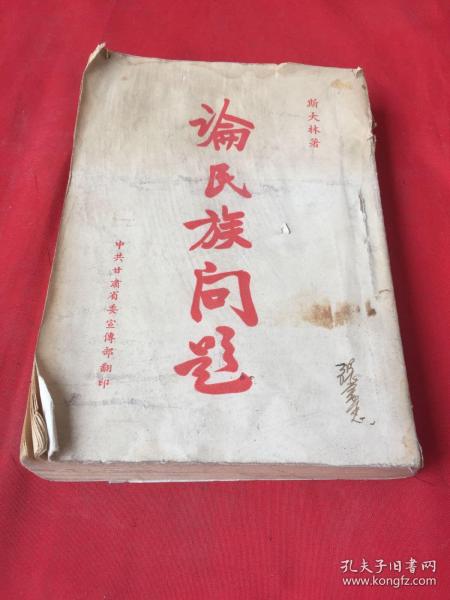 斯大林著
論民族问题
中共甘肅省委宣傳部翻印
孔夫子旧书网
www.kongfz.com